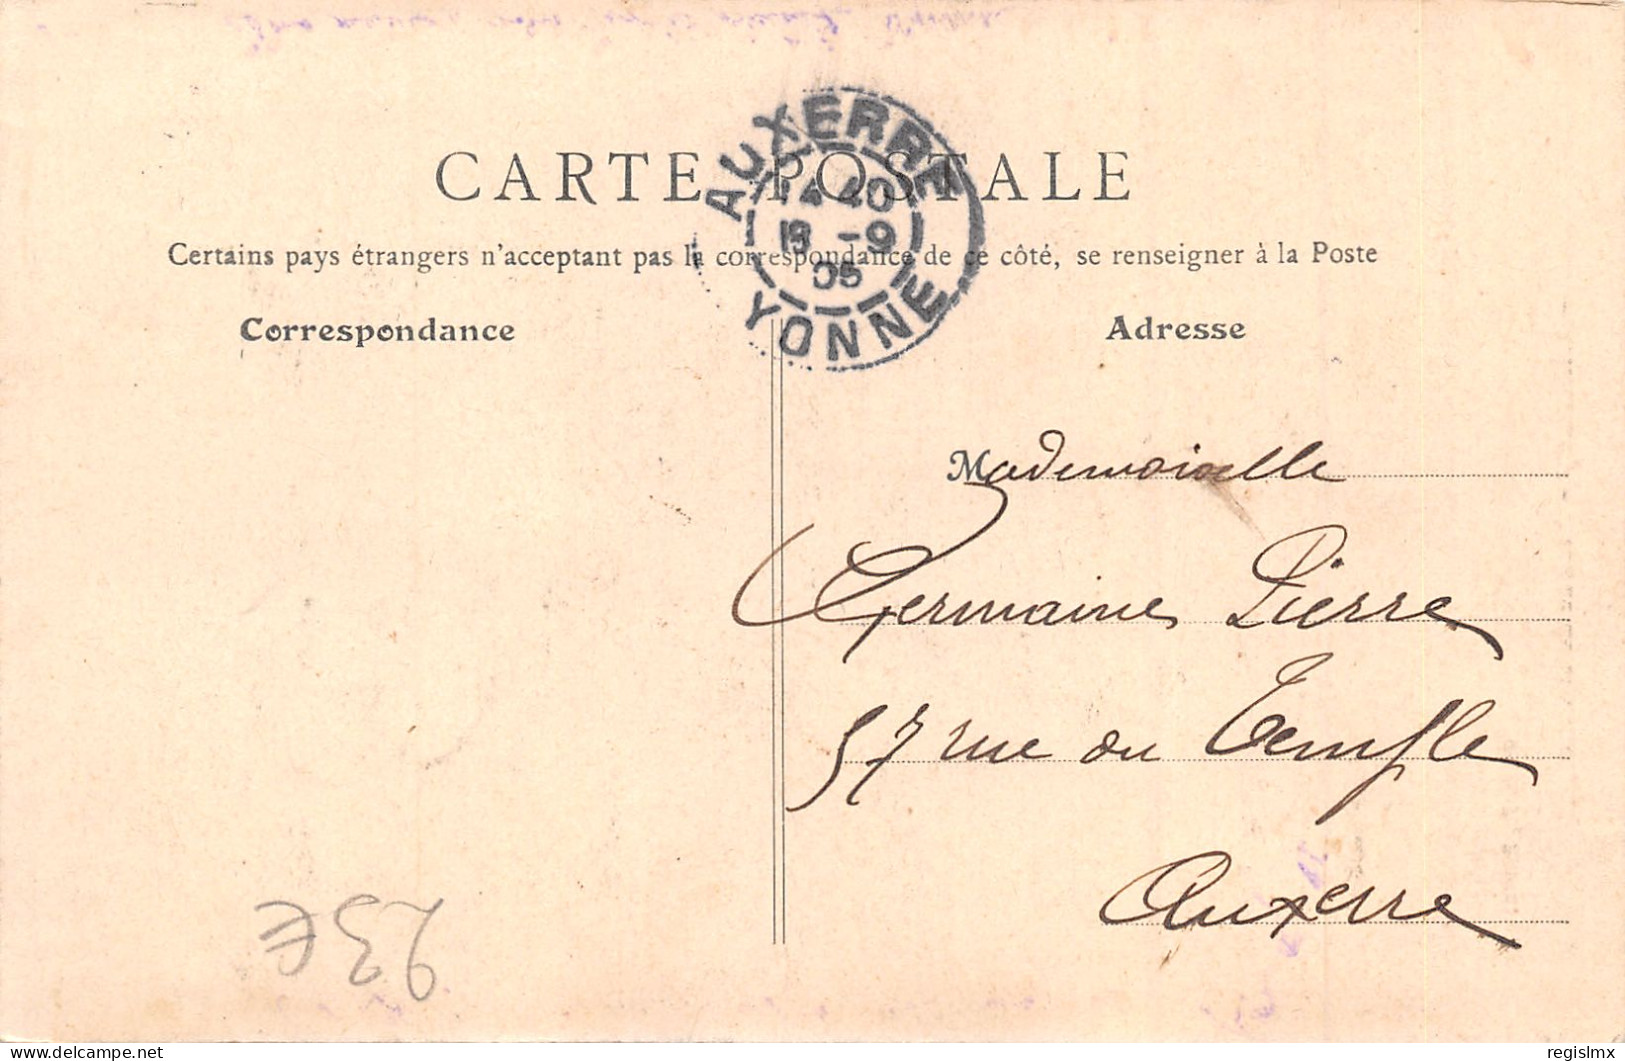 CARTE POSTALE
AUXERRE
14 40
-9
05
YONNE
Certains pays étrangers n'acceptant pas la correspondance de ce côté, se renseigner à la Poste
Correspondance
Adresse
Mademoiselle
Germaine Pierre
57 rue du Temple
Auxerre
23€
delcampe.net
regislmx